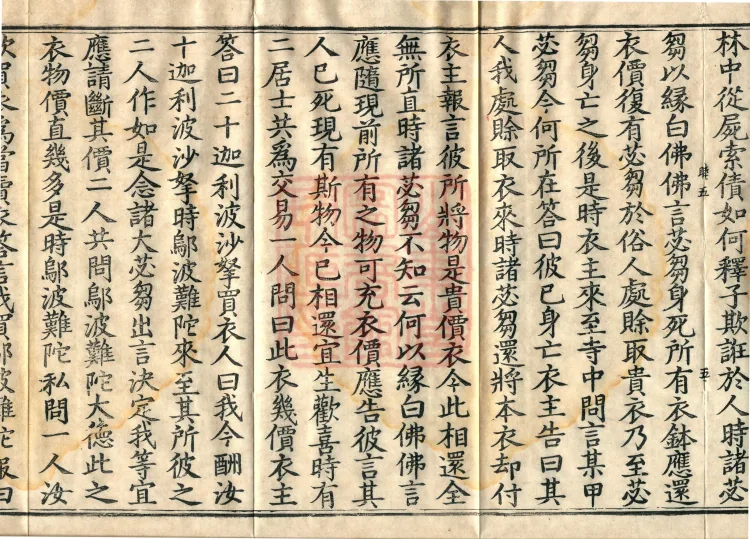 林中從屍索債如何釋子欺誑於人時諸苾
芻以緣白佛佛言苾芻身死所有衣鉢應還
衣價復有苾芻於俗人處賒取貴衣乃至苾
芻身亡之後是時衣主來至寺中問言某甲
苾芻今何所在答曰彼已身亡衣主告曰其
人我處賒取衣來時諸苾芻還將本衣却付
衣主報言彼所將物是貴價衣今此相還全
無所直時諸苾芻不知云何以緣白佛佛言
應隨現前所有之物可充衣價應告彼言其
人已死現有斯物今已相還宜生歡喜時有
二居士共爲交易一人問曰此衣幾價衣主
答曰二十迦利波沙拏買衣人曰我今酬汝
十迦利波沙拏時鄔波難陀來至其所彼之
二人作如是念諸大苾芻出言決定我等宜
應請斷其價二人共問鄔波難陀大德此之
衣物價直幾多是時鄔波難陀私問一人汝
欲買衣爲當賣衣答言我買鄔波難陀報曰
五
五